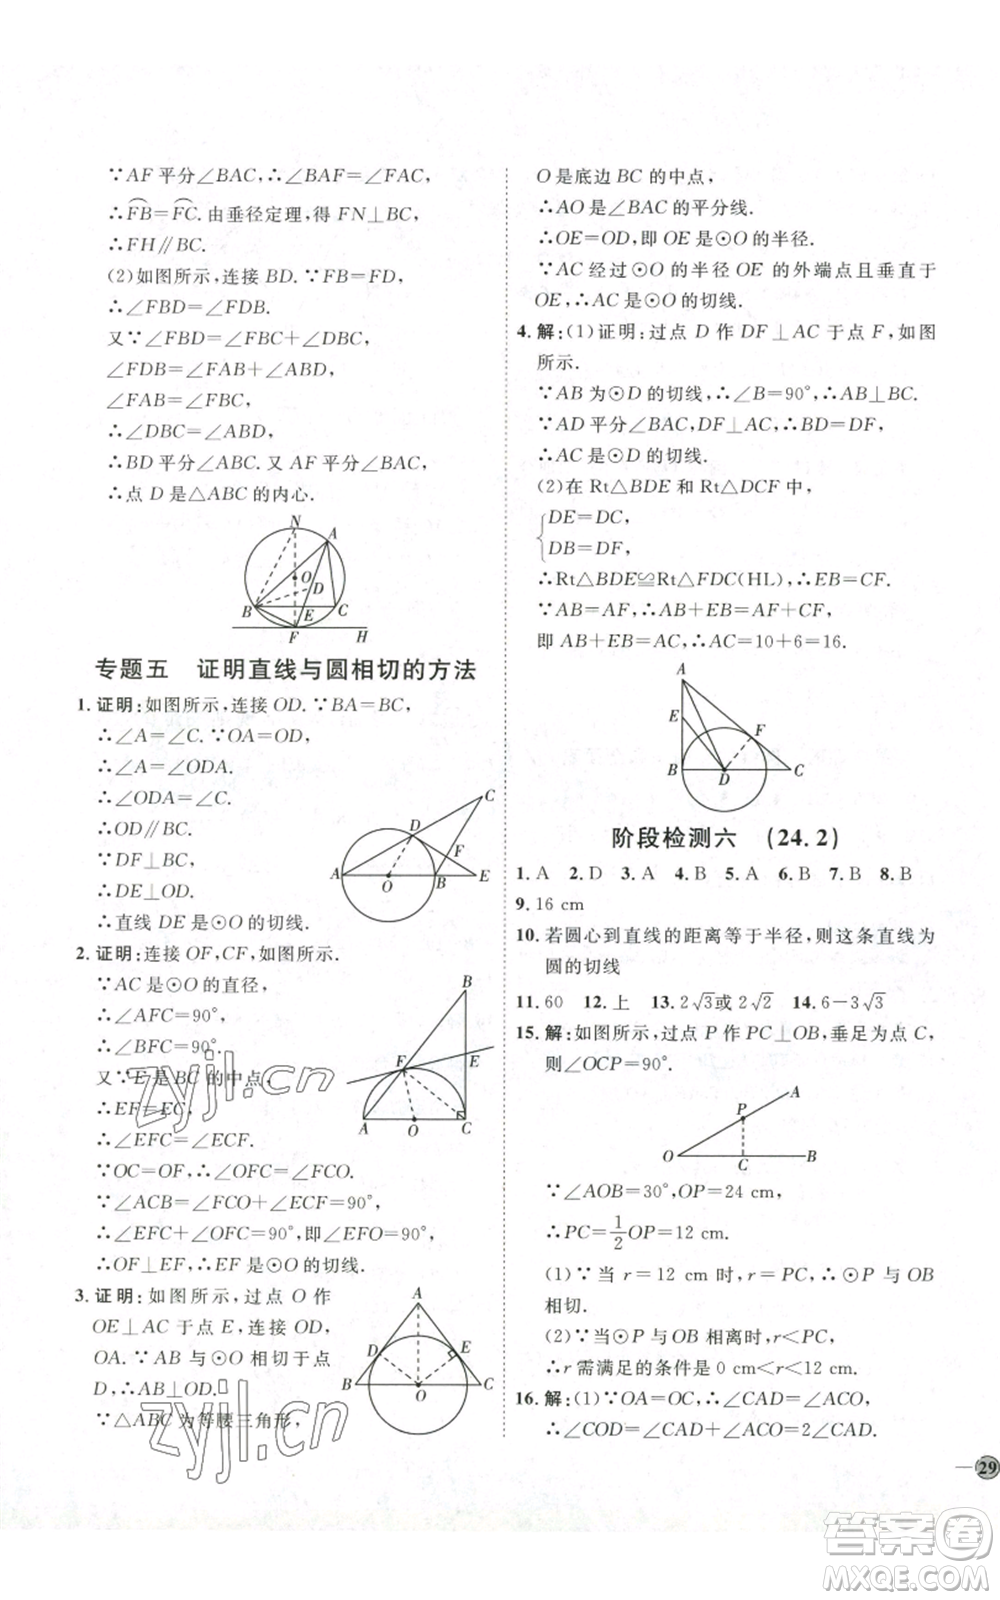 ∵AF平分∠BAC,∴∠FAB=∠FAC,
∴FB=FC. 由垂径定理,得 FN⊥BC,
∴FH∥BC.
(2)如图所示,连接 BD. ∵FB=FD,
∴∠FBD=∠FDB.
又∵∠FBD=∠FBC+∠DBC,
∠FDB=∠FAB+∠ABD,
∠FAB=∠FBC,
∴∠DBC=∠ABD,
∴BD平分∠ABC. 又 AF平分∠BAC,
∴点 D 是△ABC 的内心.
N
A
O
D
B
E
C
F
H
专题五 证明直线与圆相切的方法
1. 证明:如图所示,连接 OD. ∵BA=BC,
∴∠A=∠C. ∵OA=OD,
∴∠A=∠ODA.
∴∠ODA=∠C.
∴OD∥BC.
∵DF⊥BC,
∴DE⊥OD.
∴直线 DE 是⊙O 的切线.
C
D
F
A
O
B
E
2. 证明:连接 OF,CF,如图所示.
∵AC是⊙O 的直径,
∴∠AFC=90°,
∴∠BFC=90°.
又∵E是BC的中点,
∴EF=EC,
∴∠EFC=∠ECF.
∵OC=OF,∴∠OFC=∠FCO.
∵∠ACB=∠FCO+∠ECF=90°,
∴∠EFC+∠OFC=90°,即∠EFO=90°.
∴OF⊥EF,∴EF 是⊙O 的切线.
B
E
F
A
O
C
3. 证明:如图所示,过点 O 作
OE⊥AC 于点 E,连接 OD,
OA. ∵AB 与⊙O 相切于点
D,∴AB⊥OD.
∵△ABC 为等腰三角形,
A
D
E
B
O
C
O是底边 BC 的中点,
∴AO是∠BAC的平分线.
∴OE=OD,即 OE 是⊙O 的半径.
∵AC 经过⊙O 的半径 OE 的外端点且垂直于
OE,∴AC 是⊙O 的切线.
4. 解:(1)证明:过点 D 作 DF⊥AC 于点 F,如图
所示.
∵AB 为⊙D 的切线,∴∠B=90°,∴AB⊥BC.
∵AD平分∠BAC,DF⊥AC,∴BD=DF,
∴AC 是⊙D 的切线.
(2)在 Rt△BDE 和 Rt△DCF 中,
DE=DC,
DB=DF,
∴Rt△BDE≌Rt△FDC(HL),∴EB=CF.
∵AB=AF,∴AB+EB=AF+CF,
即 AB+EB=AC,∴AC=10+6=16.
A
E
F
B
D
C
阶段检测六 (24.2)
1. A 2. D 3. A 4. B 5. A 6. B 7. B 8. B
9. 16 cm
10. 若圆心到直线的距离等于半径,则这条直线为
圆的切线
11. 60 12. 上 13. 2√3或2√2 14. 6−3√3
15. 解:如图所示,过点 P 作 PC⊥OB,垂足为点 C,
则∠OCP=90°.
A
P
O
C
B
∵∠AOB=30°,OP=24 cm,
∴PC=1/2OP=12 cm.
(1)∵当 r=12 cm 时,r=PC,∴⊙P 与 OB
相切.
(2)∵当⊙P 与 OB 相离时,r<PC,
∴r 需满足的条件是 0 cm<r<12 cm.
16. 解:(1)∵OA=OC,∴∠CAD=∠ACO,
∴∠COD=∠CAD+∠ACO=2∠CAD.
29
zyjl.cn
zyjl.cn
答案卷
MXQE.COM